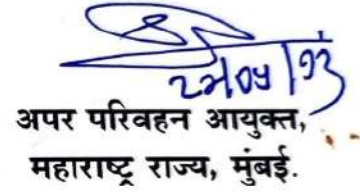 अपर परिवहन आयुक्त,
महाराष्ट्र राज्य, मुंबई.